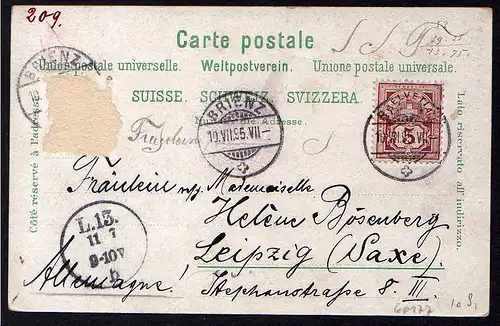 209.
Carte postale
Union postale universelle. Weltpostverein. Unione postale universale.
SUISSE. SCHWEIZ. SVIZZERA.
Nur für die Adresse.
Côté réservé à l'adresse.
Lato riservato all'indirizzo.
BRIENZ
BRIENZ
10.VII.95.VII
HELVETIA
5
Fräulein
Fräulein Mademoiselle
Helene Bösenberg
Leipzig (Saxe)
Allemagne! Stephanstraße 8 III.
L.13.
11 7
9-10V
b